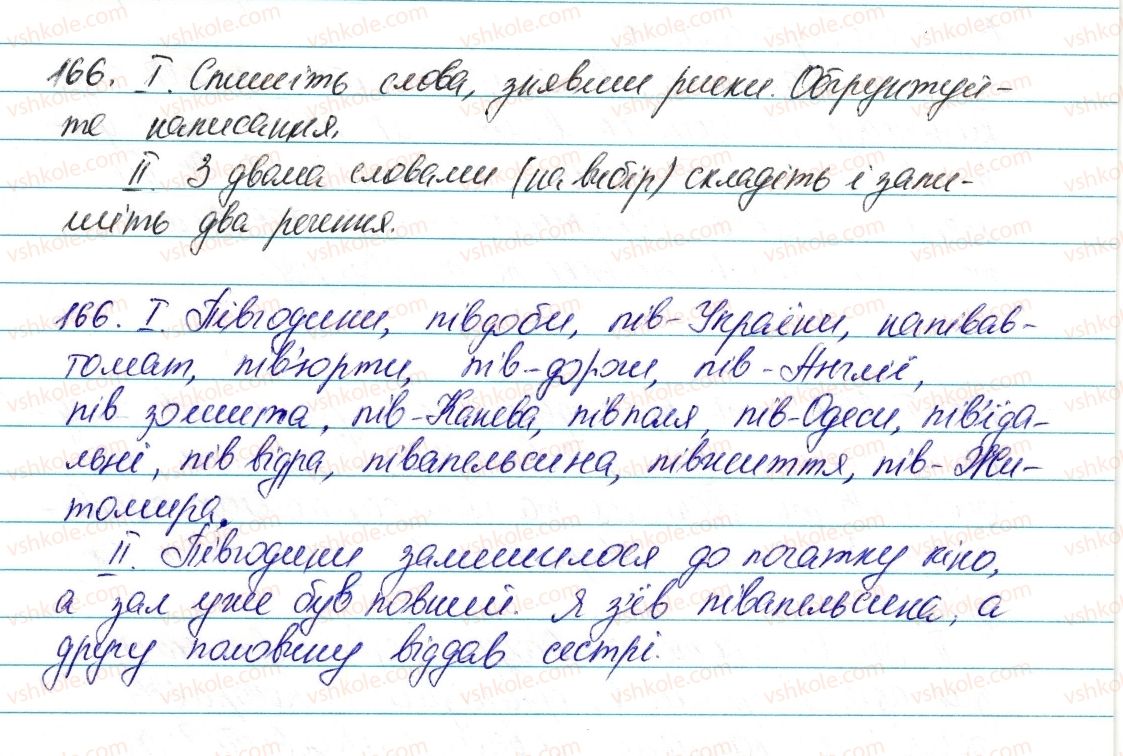 166. I. Спишіть слова, знявши риски. Обґрунтуй-
те написання.
II. З двома словами (на вибір) складіть і запи-
шіть два речення.
166. I. Півгодини, півдоби, пів-України, напівав-
томат, пів'юрти, пів-дороги, пів-Англії,
пів зошита, пів-Канева, півполя, пів-Одеси, пів'їда-
льні, пів відра, півапельсина, півжиття, пів-Жи-
томира.
II. Півгодини залишилося до початку кіно,
а зал уже був повний. Я з'їв півапельсина, а
другу половину віддав сестрі.